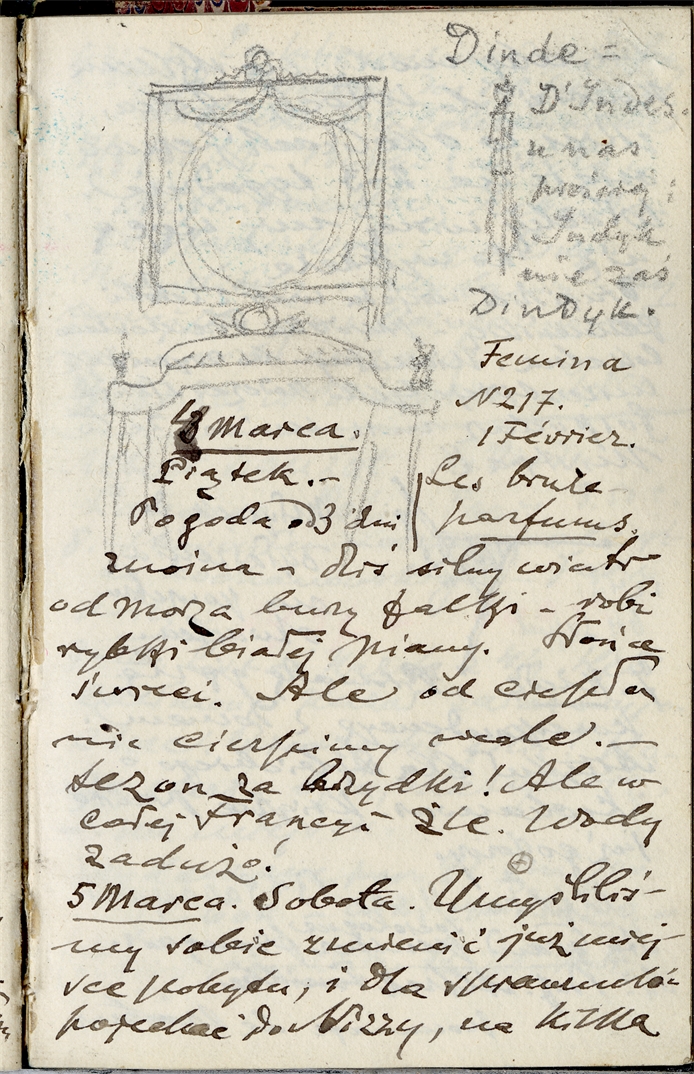 Dinde =
D'Indes.
u nas
prościej;
Indyk
nie zaś
Dindyk.
Femina
N 217.
1 Février.
Les brule-
parfums.
4 Marca.
Piątek. -
Pogoda od 3 dni
znoina - dziś silny wiatr
od morza burzy fałki - robi
rybki białej piany. Słońce
świeci. Ale od ciepła
nie cierpimy wcale. -
sezon za brzydki! Ale w
całej Francyi źle. Wody
zadużo!
5 Marca. Sobota. Umyśliliś-
my sobie zmienić już miej-
sce pobytu, i dla sprawunków
pojechać do Nizzy, na kilka